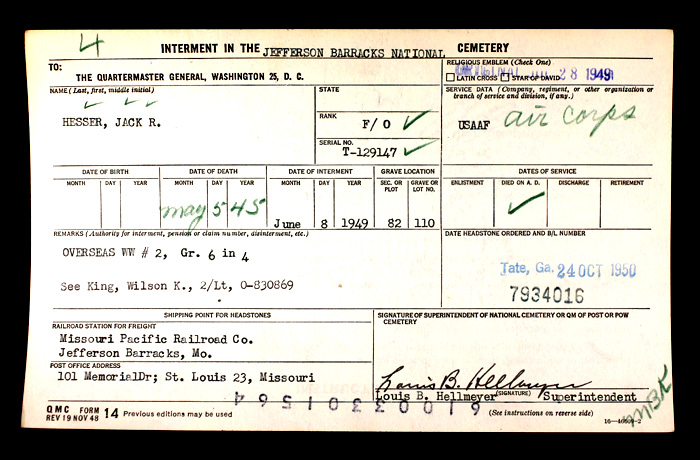 4
INTERMENT IN THE JEFFERSON BARRACKS NATIONAL CEMETERY
TO:
THE QUARTERMASTER GENERAL, WASHINGTON 25, D. C.
RELIGIOUS EMBLEM (Check One)
LATIN CROSS STAR OF DAVID
28 1949
NAME (Last, first, middle initial)
HESSER, JACK R.
STATE
RANK
F/O
SERIAL NO.
T-129147
SERVICE DATA (Company, regiment, or other organization or branch of service and division, if any.)
USAAF air corps
DATE OF BIRTH DATE OF DEATH DATE OF INTERMENT GRAVE LOCATION DATES OF SERVICE
MONTH DAY YEAR MONTH DAY YEAR MONTH DAY YEAR SEC. OR PLOT GRAVE OR LOT NO. ENLISTMENT DIED ON A. D. DISCHARGE RETIREMENT
may 5 45 June 8 1949 82 110
REMARKS (Authority for interment, pension or claim number, disinterment, etc.)
OVERSEAS WW # 2, Gr. 6 in 4
See King, Wilson K., 2/Lt, O-830869
DATE HEADSTONE ORDERED AND B/L NUMBER
Tate, Ga. 24 OCT 1950
7934016
SHIPPING POINT FOR HEADSTONES
RAILROAD STATION FOR FREIGHT
Missouri Pacific Railroad Co.
Jefferson Barracks, Mo.
POST OFFICE ADDRESS
101 MemorialDr; St. Louis 23, Missouri
SIGNATURE OF SUPERINTENDENT OF NATIONAL CEMETERY OR QM OF POST OR POW CEMETERY
Louis B. Hellmeyer
Louis B. Hellmeyer (SIGNATURE) Superintendent
QMC FORM 14 Previous editions may be used
REV 19 NOV 48
(See instructions on reverse side)
MBK